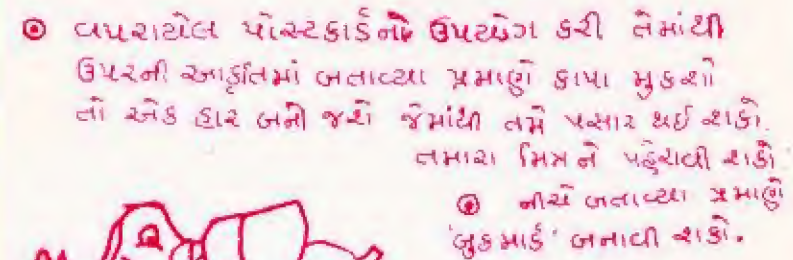 વપરાયેલ પોસ્ટકાર્ડનો ઉપયોગ કરી તેમાંથી
ઉપરની આકૃતિમાં બતાવ્યા પ્રમાણે કાપા મુકશો
તો એક હાર બની જશે જેમાંથી તમે પસાર થઈ શકો.
તમારા મિત્રને પહેરાવી શકો.
નીચે બતાવ્યા પ્રમાણે
'બુકમાર્ક' બનાવી શકો.